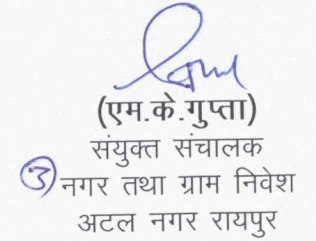 (एम.के.गुप्ता)
संयुक्त संचालक
3 नगर तथा ग्राम निवेश
अटल नगर रायपुर